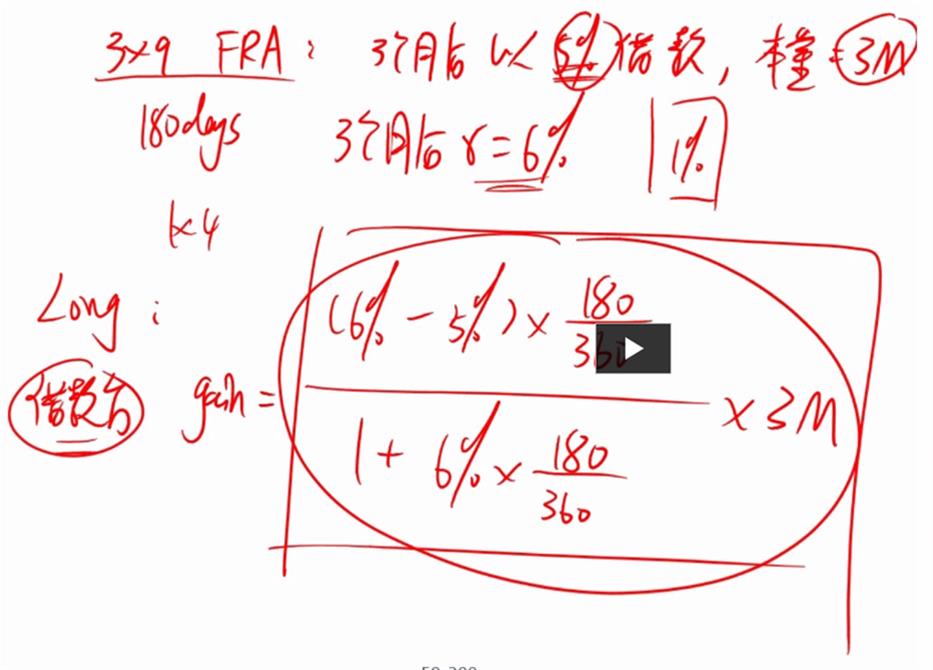 3×9 FRA: 3个月后以5%借款, 本金=3M
180days 3个月后 r=6% 1%
1×4
Long:
(6% - 5%) × 180/360
借款方 gain = × 3M
1 + 6% × 180/360